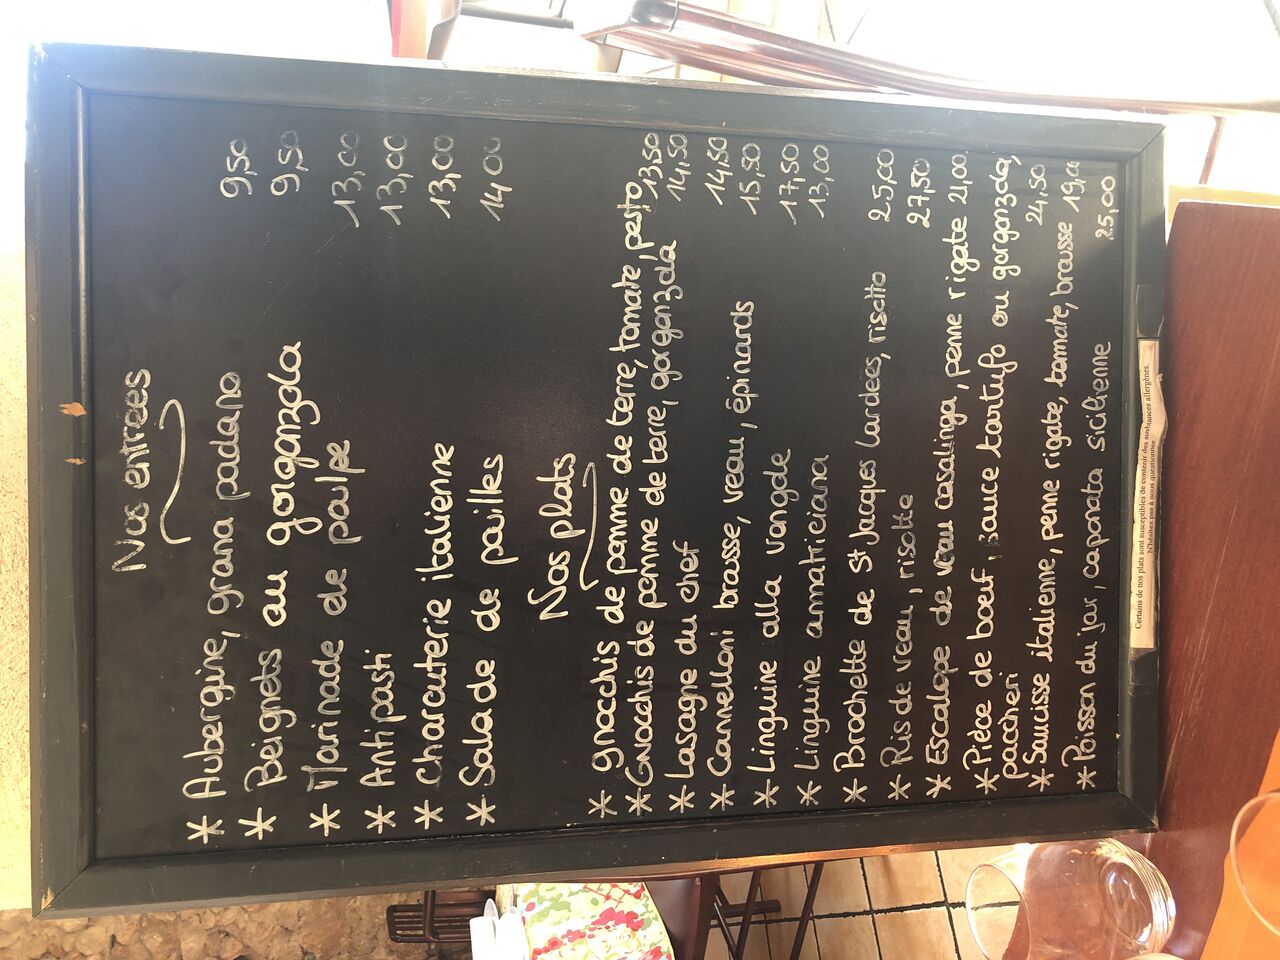 Nos entrées
* Aubergine, grana padano 9,50
* Beignets au gorgonzola 9,50
* Marinade de poulpe 13,00
* Antipasti 13,00
* Charcuterie italienne 13,00
* Salade de pailles 14,00
Nos plats
* gnocchis de pomme de terre, tomate, pesto 13,50
* Gnocchis de pomme de terre, gorgonzola 14,50
* Lasagne du chef 14,50
* Cannelloni brousse, veau, épinards 15,50
* Linguine alla vongole 17,50
* Linguine amatriciana 13,00
* Brochette de St Jacques lardées, risotto 25,00
* Ris de veau, risotto 27,50
* Escalope de veau casalinga, penne rigate 21,00
* Pièce de boeuf, sauce tartufo ou gorgonzola,
paccheri 24,50
* Saucisse italienne, penne rigate, tomate, brousse 19,00
* Poisson du jour, caponata sicilienne 25,00
Certains de nos plats sont susceptibles de contenir des substances allergènes.
N'hésitez pas à nous questionner